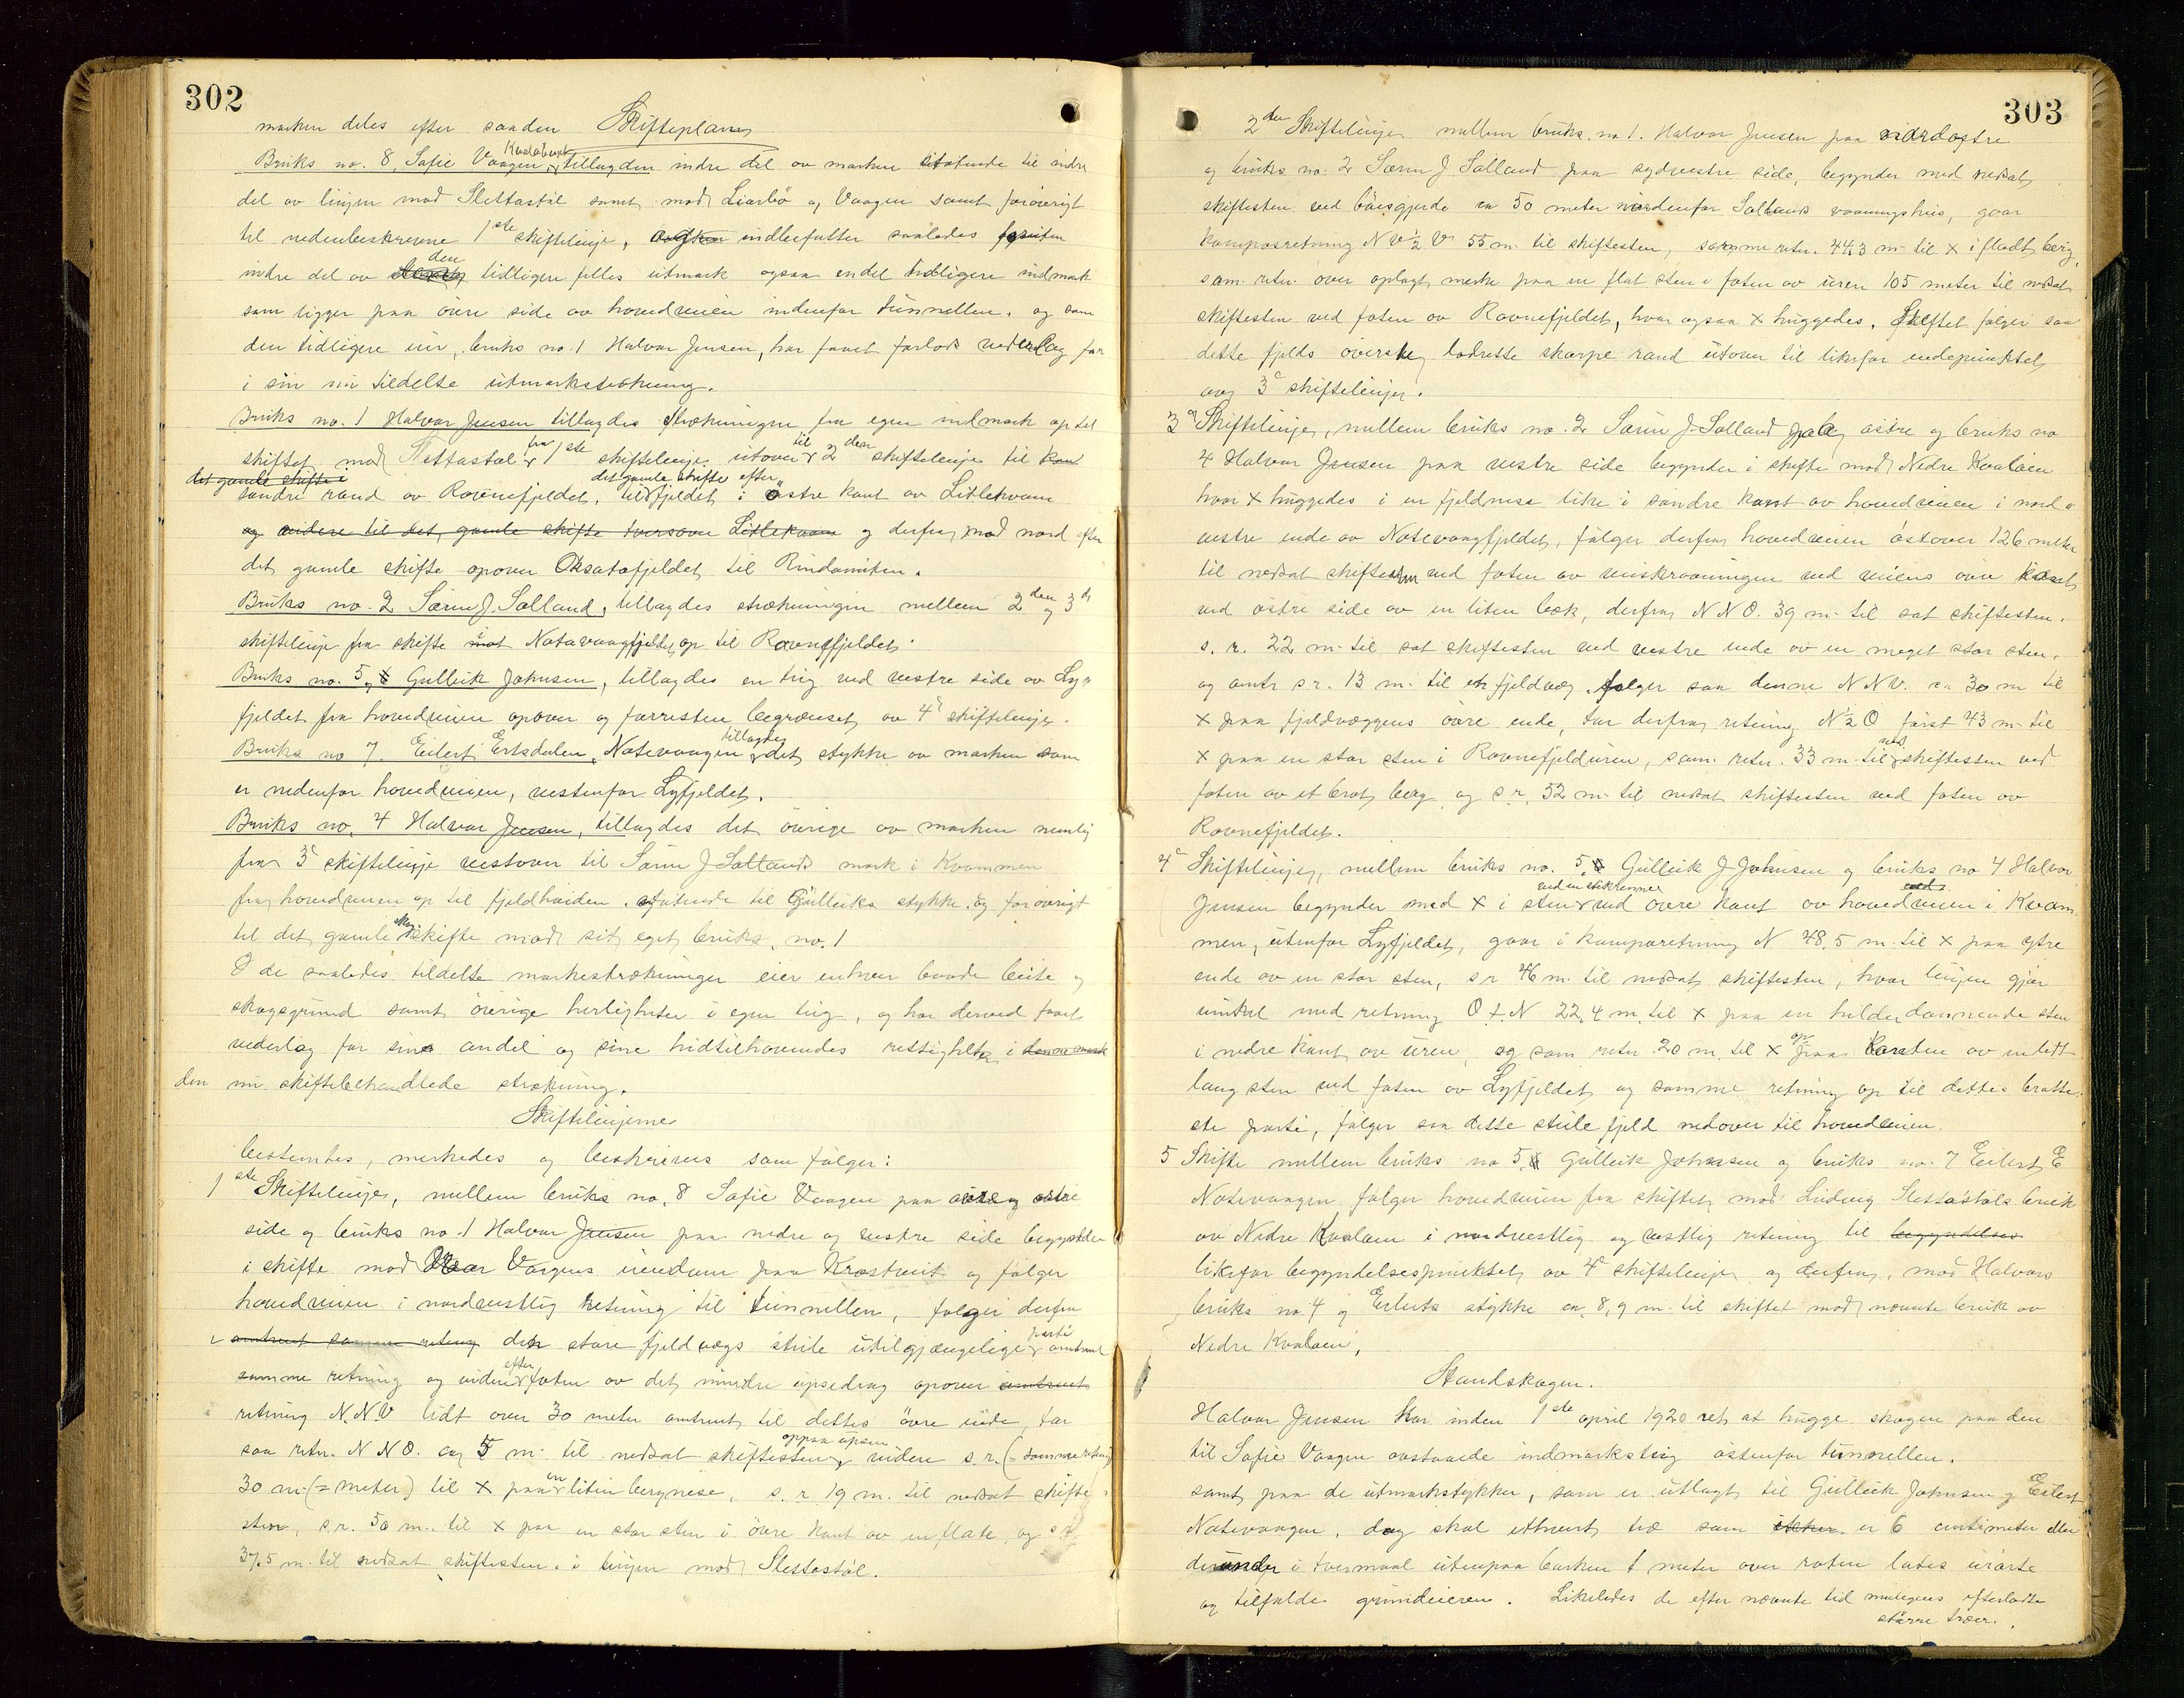 302
marken deles efter saaden Skifteplan
Bruks no. 8, Sofie Vaagen, Kvalabugt tillagdes indre del av marken støtende til indre
del av linjen mod Slettastøl samt mod Liarbö og Vaagen samt forøvrigt
til nedenbeskrevne 1ste skiftelinje, indbefatter saaledes foruten
indre del av den tidligere felles utmark ogsaa endel tidligere indmark
som ligger paa övre side av hovedveien indenfor tunnellen, og som
den tidligere eier, bruks no. 1 Halvar Jensen, har faaet forlods vederlag for
i sin nu tildelte utmarkstrekning.
Bruks no. 1 Halvar Jensen tillagdes strekningen fra egen indmark op til
skiftet mod Slettastøl fra 1ste skiftelinje utover til 2den skiftelinje til
det gamle skifte i det gamle skifte efter
söndre rand av Ravnefjeldet, til fjeldet i östre kant av Litlekvam
og videre til det gamle skifte tversover Litlekvam og derfra mod nord efter
det gamle skifte opover Oksatafjeldet til Rindanuten.
Bruks no. 2 Sørin J. Salland, tillagdes strekningen mellem 2den og 3de
skiftelinje fra skifte mot Notavaagfjeldet op til Ravnefjeldet.
Bruks no. 5, Gulleik Johnsen, tillagdes en teig ved vestre side av Ly-
fjeldet fra hovedveien opover og forresten begrænset av 4de skiftelinje.
Bruks no 7. Eilert Ertsdalen, Notevaagen tillagdes det stykke av marken som
er nedenfor hovedveien, vestenfor Lyfjeldet.
Bruks no. 4 Halvar Jensen, tillagdes det övrige av marken nemlig
fra 3de skiftelinje vestover til Sørin J Sallands mark i Kvammen
fra hovedveien op til fjeldhøiden, støtende til Gulleiks stykke og forøvrigt
til det gamle skifte mod sit eget bruks no. 1
I de saaledes tildelte markestrekninger eier enhver baade beite og
skogsgrund samt övrige herligheter i egen teig, og har derved faaet
vederlag for sin andel og sine hidtilhavendes rettigheter i denne mark
den nu skiftebehandlede strekning.
Skiftelinjerne
bestemtes, merkedes og beskrives som følger:
1ste Skiftelinje, mellem bruks no. 8 Sofie Vaagen paa övre og östre
side og bruks no. 1 Halvar Jensen paa nedre og vestre side begynder
i skifte mod Vaagens eiendom paa Krosstveit og følger
hovedveien i nordvestlig retning til tunnellen, følger derfra
amtrent samme retning den store fjeldvægs steile utilgjængelige parti amtrent
samme retning og videre efter foten av det mindre upsedrag opover amtrent
retning N.N.V lidt over 30 meter amtrent til dettes övre ende, tar
saa retn. N N O. ca 5 m. til nedsat skiftesten oppaa upsen videre s.r. (= samme retning)
30 m. (= meter) til × paa en liten bergnese, s.r 19 m. til nedsat skifte-
sten, s.r. 50 m. til × paa en stor sten i övre kant av en flate, og s.r.
37,5 m. til nedsat skiftesten i linjen mod Slettastøl.
303
2den Skiftelinje mellem bruks no 1. Halvar Jensen paa nordostre
og bruks no. 2 Sørin J Salland paa sydvestre side, begynder med nedsat
skiftesten ved böesgjerde ca 50 meter nordenfor Sallands vaaningshus, gaar
kompasretning N V ½ V 55 m. til skiftesten, samme retn. 44,3 m. til × i fladt berg,
sam. retn. over oplagt merke paa en flat sten i foten av uren 105 meter til nedsat
skiftesten ved foten av Ravnefjeldet, hvor ogsaa × huggedes. Skiftet følger saa
dette fjelds överste lodrette skarpe rand utover til likefor endepunktet
av 3de skiftelinje.
3de Skiftelinje, mellem bruks no. 2 Sørin J-Salland paa östre og bruks no
4 Halvar Jensen paa vestre side begynder i skifte mod Nedre Kvalaen
hvor × huggedes i en fjeldnese like i søndre kant av hovedveien i nord-
vestre ende av Notevaagfjeldet, følger derfra hovedveien östover 126 meter
til nedsat skiftesten ved foten av veiskraaningen ved veiens övre kant
ved östre side av en liten bæk, derfra N N O. 39 m. til sat skiftesten.
s. r. 22 m. til sat skiftesten ved vestre ende av en meget stor sten,
og amtr s r. 13 m. til en fjeldvæg, følger saa denne N N V. ca 30 m til
× paa fjeldvæggens övre ende, tar derfra retning N ½ O først 43 m. til
× paa en stor sten i Ravnefjelduren, sam. retn. 33 m. til neds. skiftesten ved
foten av et brat berg og s r. 52 m. til nedsat skiftesten ved foten av
Ravnefjeldet.
4de Skiftelinje, mellem bruks no. 5, Gulleik J Johnsen og bruks no 4 Halvar
Jensen begynder med × i sten ved en stikrenne ved övre kant av hovedveien i Kvam-
men, utenfor Lyfjeldet, gaar i kompasretning N 48,5 m. til × paa ytre
ende av en stor sten, s r 46 m. til nedsat skiftesten, hvor linjen gjør
vinkel med retning O t. N 22,4 m. til × paa en helderdannende sten
i nedre kant av uren, og sam retn 20 m. til × op paa kanten av en lidt
lang sten ved foten av Lyfjeldet og samme retning op til dettes bratte-
ste parti, følger saa dette steile fjeld nedover til hovedveien.
5 Skifte mellem bruks no 5, Gulleik Johnsen og bruks no. 7 Eilert E
Notevaagen følger hovedveien fra skiftet mod Ludvig Slettastøls bruk
av Nedre Kvalaen i nordvestlig og vestlig retning til begyndelses
likefor begyndelsespunktet av 4de skiftelinje og derfra, mod Halvars
bruks no. 4 og Eilerts stykke ca. 8,9 m. til skiftet mod nævnte bruk av
Nedre Kvalaen,
Standskogen.
Halvar Jensen har inden 1ste april 1920 ret at hugge skogen paa den
til Sofie Vaagen avstaaede indmarksteig østenfor tunnellen.
samt paa de utmarkstykker, som er utlagt til Gulleik Johnsen og Eilert
Notevaagen, dog skal ethvert træ som er 6 centimeter eller
derunder i tvermaal utenpaa barken 1 meter over roten lates urørte
og tilfalde grundeieren. Likeledes de efter nævnte tid muligens efterladte
större trær.